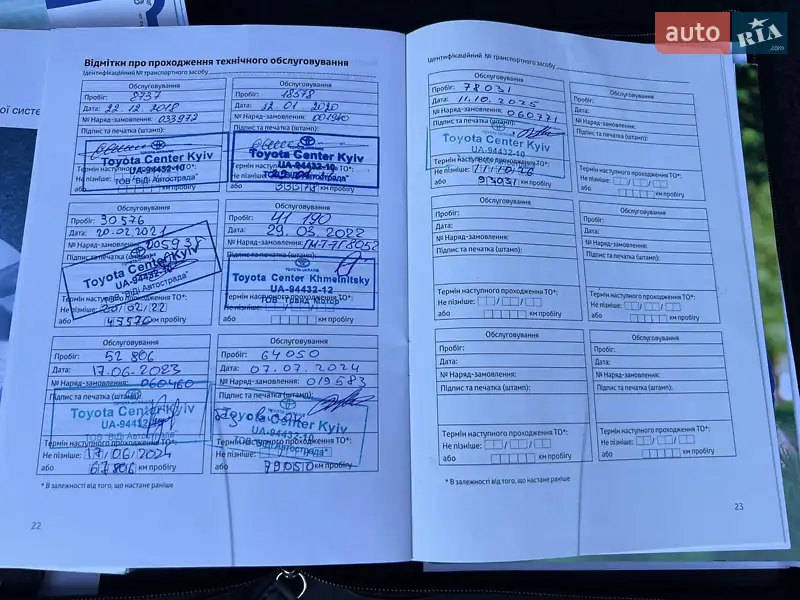 auto RIA .com
ої систе
Відмітки про проходження технічного обслуговування
Ідентифікаційний № транспортного засобу
Обслуговування
Пробіг: 8737
Дата: 22.12.2018
№ Наряд-замовлення: 033972
Підпис та печатка (штамп):
Toyota Center Kyiv
UA-94432-10
ТОВ "ВіДі Автострада"
Термін наступного проходження ТО*:
Не пізніше:
або км пробігу
Обслуговування
Пробіг: 18578
Дата: 22.01.2020
№ Наряд-замовлення: 001940
Підпис та печатка (штамп):
Toyota Center Kyiv
UA-94432-10
ТОВ "ВіДі Автострада"
Термін наступного проходження ТО*:
Не пізніше:
або 33578 км пробігу
Обслуговування
Пробіг: 30576
Дата: 20.02.2021
№ Наряд-замовлення: 005937
Підпис та печатка (штамп):
Toyota Center Kyiv
UA-94432-10
ТОВ "ВіДі Автострада"
Термін наступного проходження ТО*:
Не пізніше: 20/02/22
або 45576 км пробігу
Обслуговування
Пробіг: 41 190
Дата: 29.03.2022
№ Наряд-замовлення:
Підпис та печатка (штамп):
TOYOTA-UKRAINE
Toyota Center Khmelnitsky
UA-94432-12
ТОВ "Гранд Мотор"
Не пізніше:
або км пробігу
Обслуговування
Пробіг: 52 806
Дата: 17.06.2023
№ Наряд-замовлення: 060460
Підпис та печатка (штамп):
Toyota Center Kyiv
UA-94432-10
ТОВ "ВіДі Автострада"
Термін наступного проходження ТО*:
Не пізніше: 17/06/2024
або 67806 км пробігу
Обслуговування
Пробіг: 64050
Дата: 07.07.2024
№ Наряд-замовлення: 019583
Підпис та печатка (штамп):
Toyota Center Kyiv
UA-94432-10
ТОВ "ВіДі Автострада"
Термін наступного проходження ТО*:
Не пізніше:
або 79050 км пробігу
* В залежності від того, що настане раніше
22
Ідентифікаційний № транспортного засобу
Обслуговування
Пробіг: 78031
Дата: 11.10.2025
№ Наряд-замовлення: 060771
Підпис та печатка (штамп):
Toyota Center Kyiv
UA-94432-10
Термін наступного проходження ТО*:
Не пізніше:
або 93031 км пробігу
Обслуговування
Пробіг:
Дата:
№ Наряд-замовлення:
Підпис та печатка (штамп):
Термін наступного проходження ТО*:
Не пізніше:
або км пробігу
Обслуговування
Пробіг:
Дата:
№ Наряд-замовлення:
Підпис та печатка (штамп):
Термін наступного проходження ТО*:
Не пізніше:
або км пробігу
Обслуговування
Пробіг:
Дата:
№ Наряд-замовлення:
Підпис та печатка (штамп):
Термін наступного проходження ТО*:
Не пізніше:
або км пробігу
Обслуговування
Пробіг:
Дата:
№ Наряд-замовлення:
Підпис та печатка (штамп):
Термін наступного проходження ТО*:
Не пізніше:
або км пробігу
Обслуговування
Пробіг:
Дата:
№ Наряд-замовлення:
Підпис та печатка (штамп):
Термін наступного проходження ТО*:
Не пізніше:
або км пробігу
* В залежності від того, що настане раніше
23